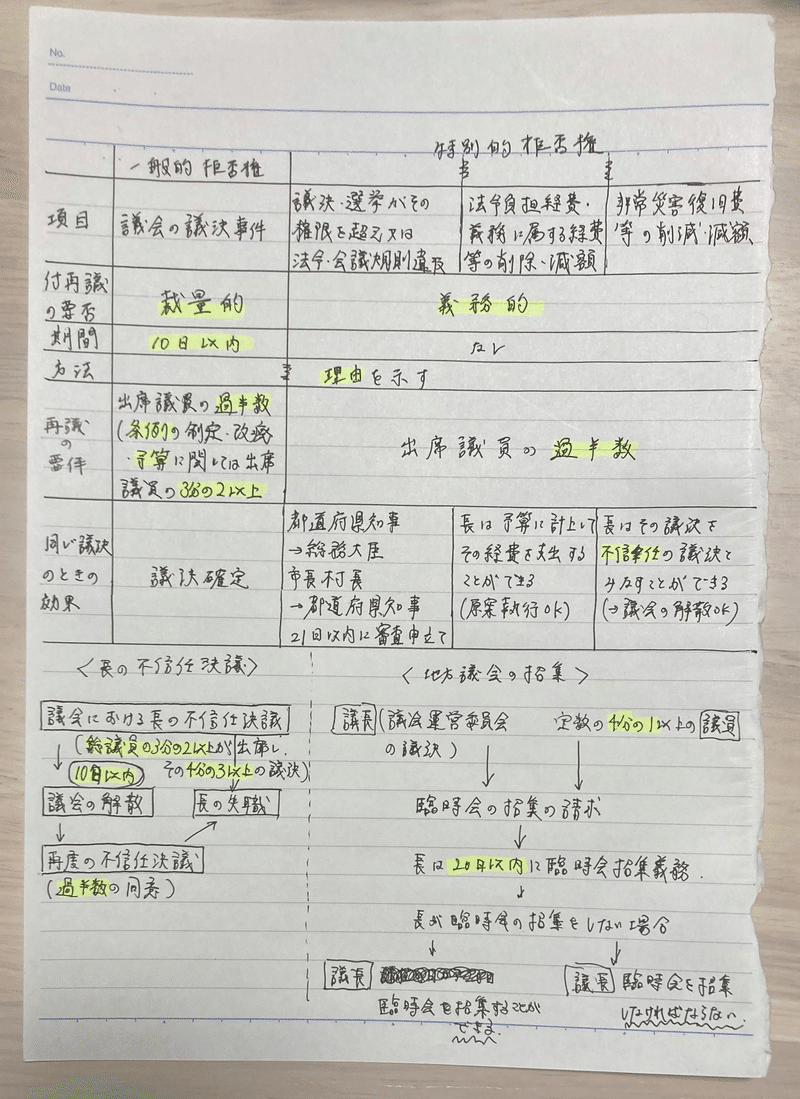 No.
Date
特別的拒否権
一般的拒否権
項目
議会の議決事件
議決・選挙がその
権限を超え又は
法令・会議規則違反
法令負担経費・
義務に属する経費
等の削除・減額
非常災害復旧費
等の削減・減額
付再議
の要否
裁量的
義務的
期間
10日以内
なし
方法
理由を示す
再議
の
要件
出席議員の過半数
(条例の制定・改廃
・予算に関しては出席
議員の3分の2以上
出席議員の過半数
同じ議決
のときの
効果
議決確定
都道府県知事
→総務大臣
市長村長
→都道府県知事
21日以内に審査申立て
長は予算に計上して
その経費を支出する
ことができる
(原案執行OK)
長はその議決を
不信任の議決と
みなすことができる
(→議会の解散OK)
<長の不信任決議>
議会における長の不信任決議
(総議員の3分の2以上が出席し、
10日以内
その4分の3以上の議決)
議会の解散
長の失職
再度の不信任決議
(過半数の同意)
<地方議会の招集>
議長(議会運営委員会
の議決)
定数の4分の1以上の議員
臨時会の招集の請求
長は20日以内に臨時会招集義務.
長が臨時会の招集をしない場合
議長
臨時会を招集することが
できる.
議長 臨時会を招集
しなければならない.